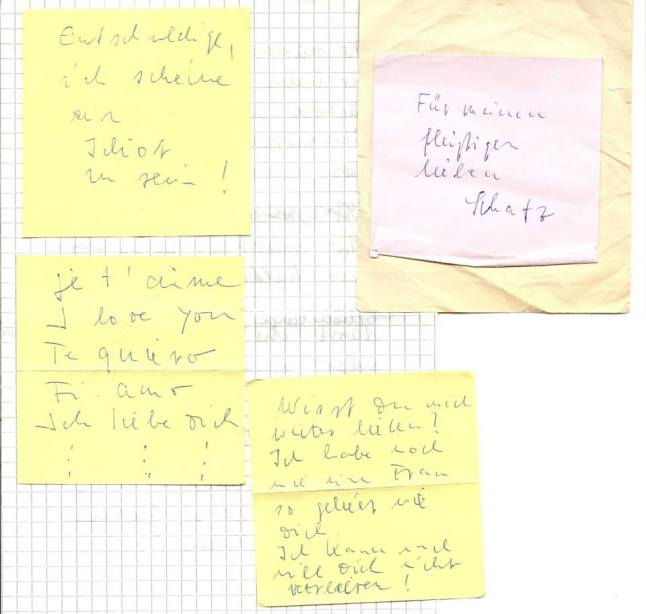 Entschuldige,
ich scheine
ein
Idiot
zu sein!
Für meinen
fleißigen
lieben
Schatz
je t'aime
I love you
Te quiero
Ti amo
Ich liebe Dich
Wirst Du mich
weiter lieben?
Ich habe noch
nie eine Frau
so geliebt wie
Dich.
Ich kann und
will Dich nicht
verlieren!